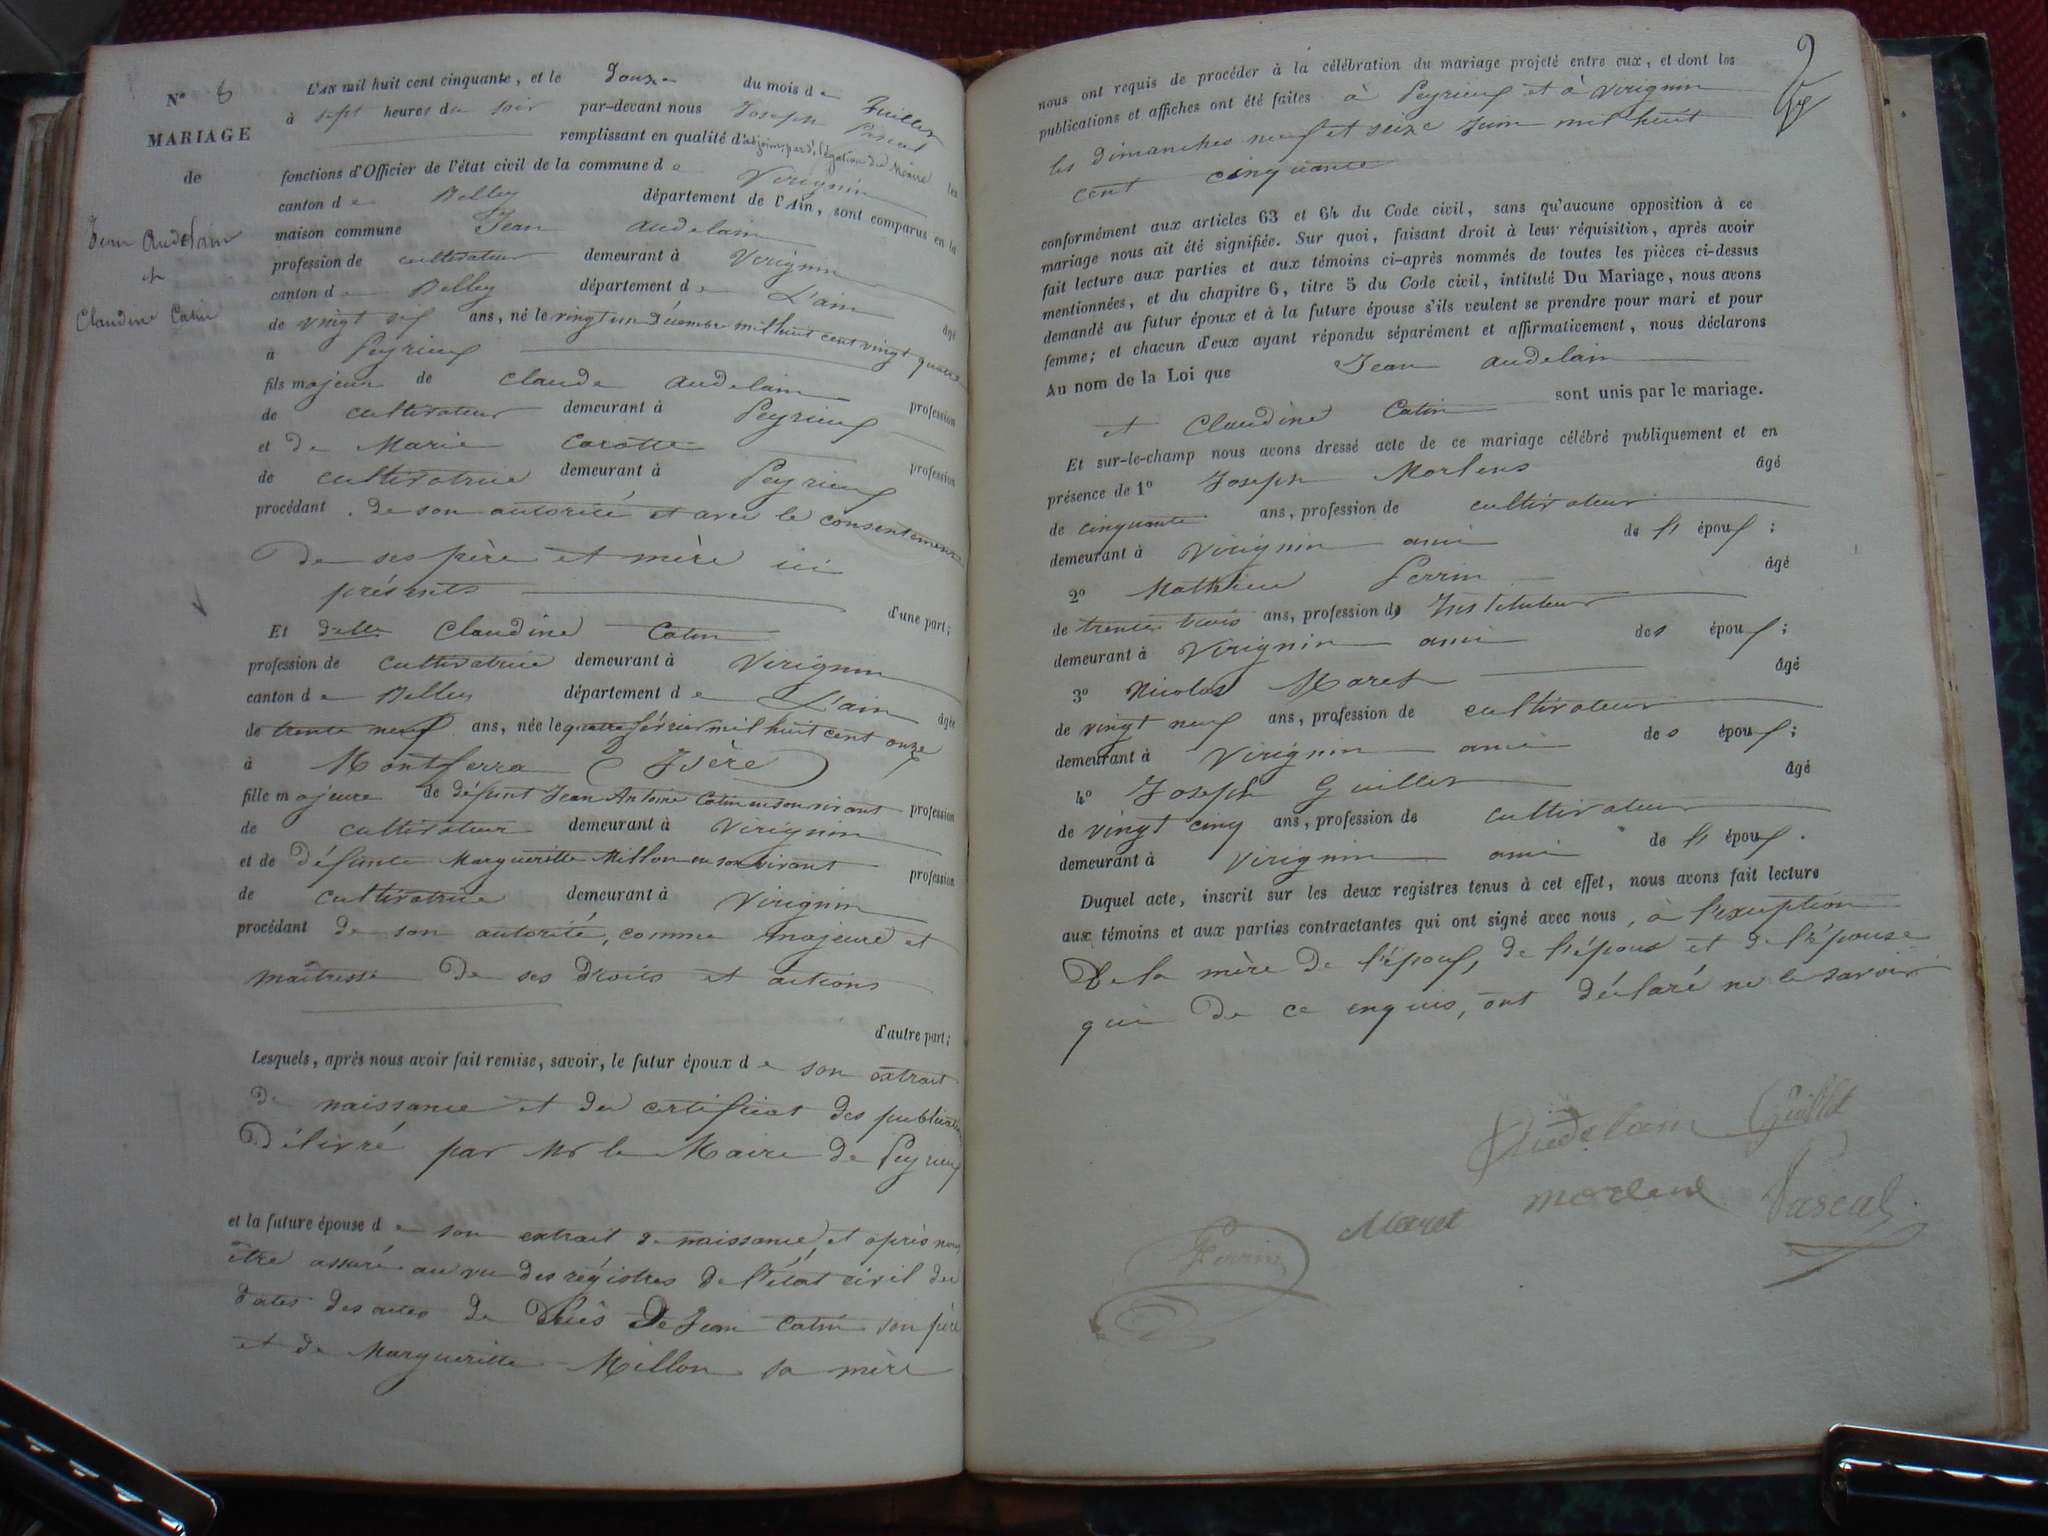 N° 8
MARIAGE
de
Jean Audelain
et
Claudine Catin
L'AN mil huit cent cinquante, et le Douze du mois de Juillet
à sept heures du soir par-devant nous Joseph Pascal
remplissant en qualité d'adjoint par délégation du Maire les
fonctions d'Officier de l'état civil de la commune de Virignin
canton de Belley département de l'Ain, sont comparus en la
maison commune Jean Audelain
profession de cultivateur demeurant à Virignin
canton de Belley département de L'ain âgé
de vingt ans, né le vingt un Décembre mil huit cent vingt quatre
à Peyrieux
fils majeur de Claude Audelain profession
de cultivateur demeurant à Peyrieux
et de Marie Carotte profession
de cultivatrice demeurant à Peyrieux
procédant de son autorité et avec le consentement
De ses père et mère ici
présents d'une part;
Et Delle Claudine Catin
profession de cultivatrice demeurant à Virignin
canton de Belley département de L'ain âgée
de trente neuf ans, née le quatre février mil huit cent onze
à Montferra (Isère)
fille majeure de défunt Jean Antoine Catin en son vivant profession
de cultivateur demeurant à Virignin
et de Défunte Margueritte Millon en son vivant profession
de cultivatrice demeurant à Virignin
procédant de son autorité, comme majeure et
maitresse De ses Droits et actions
d'autre part;
Lesquels, après nous avoir fait remise, savoir, le futur époux de son extrait
De naissance et du certificat des publications
Délivré par Mr le Maire de Peyrieux
et la future épouse de son extrait de naissance, et après nous
être assuré au vu des régistres de l'état civil des
dates des actes de Décès De Jean Catin son père
et de Margueritte Millon sa mère
nous ont requis de procéder à la célébration du mariage projeté entre eux, et dont les
publications et affiches ont été faites à Peyrieux et à Virignin
les dimanches neuf et seize Juin mil huit
cent cinquante
conformément aux articles 63 et 64 du Code civil, sans qu'aucune opposition à ce
mariage nous ait été signifiée. Sur quoi, faisant droit à leur réquisition, après avoir
fait lecture aux parties et aux témoins ci-après nommés de toutes les pièces ci-dessus
mentionnées, et du chapitre 6, titre 5 du Code civil, intitulé Du Mariage, nous avons
demandé au futur époux et à la future épouse s'ils veulent se prendre pour mari et pour
femme; et chacun d'eux ayant répondu séparément et affirmativement, nous déclarons
Au nom de la Loi que Jean Audelain
et Claudine Catin sont unis par le mariage.
Et sur-le-champ nous avons dressé acte de ce mariage célébré publiquement et en
présence de 1° Joseph Morlens âgé
de cinquante ans, profession de cultivateur
demeurant à Virignin ami de l' époux;
2° Mathieu Perrin âgé
de trente trois ans, profession d' Instituteur
demeurant à Virignin ami des époux;
3° Nicolas Maret âgé
de vingt neuf ans, profession de cultivateur
demeurant à Virignin ami des époux;
4° Joseph Guillet âgé
de vingt cinq ans, profession de cultivateur
demeurant à Virignin ami de l' époux.
Duquel acte, inscrit sur les deux registres tenus à cet effet, nous avons fait lecture
aux témoins et aux parties contractantes qui ont signé avec nous, à l'exception
De la mère de l'époux, de l'époux et de l'épouse
qui De ce enquis, ont déclaré ne le savoir
Audelain Guillet
Perrin Maret morlens Pascal